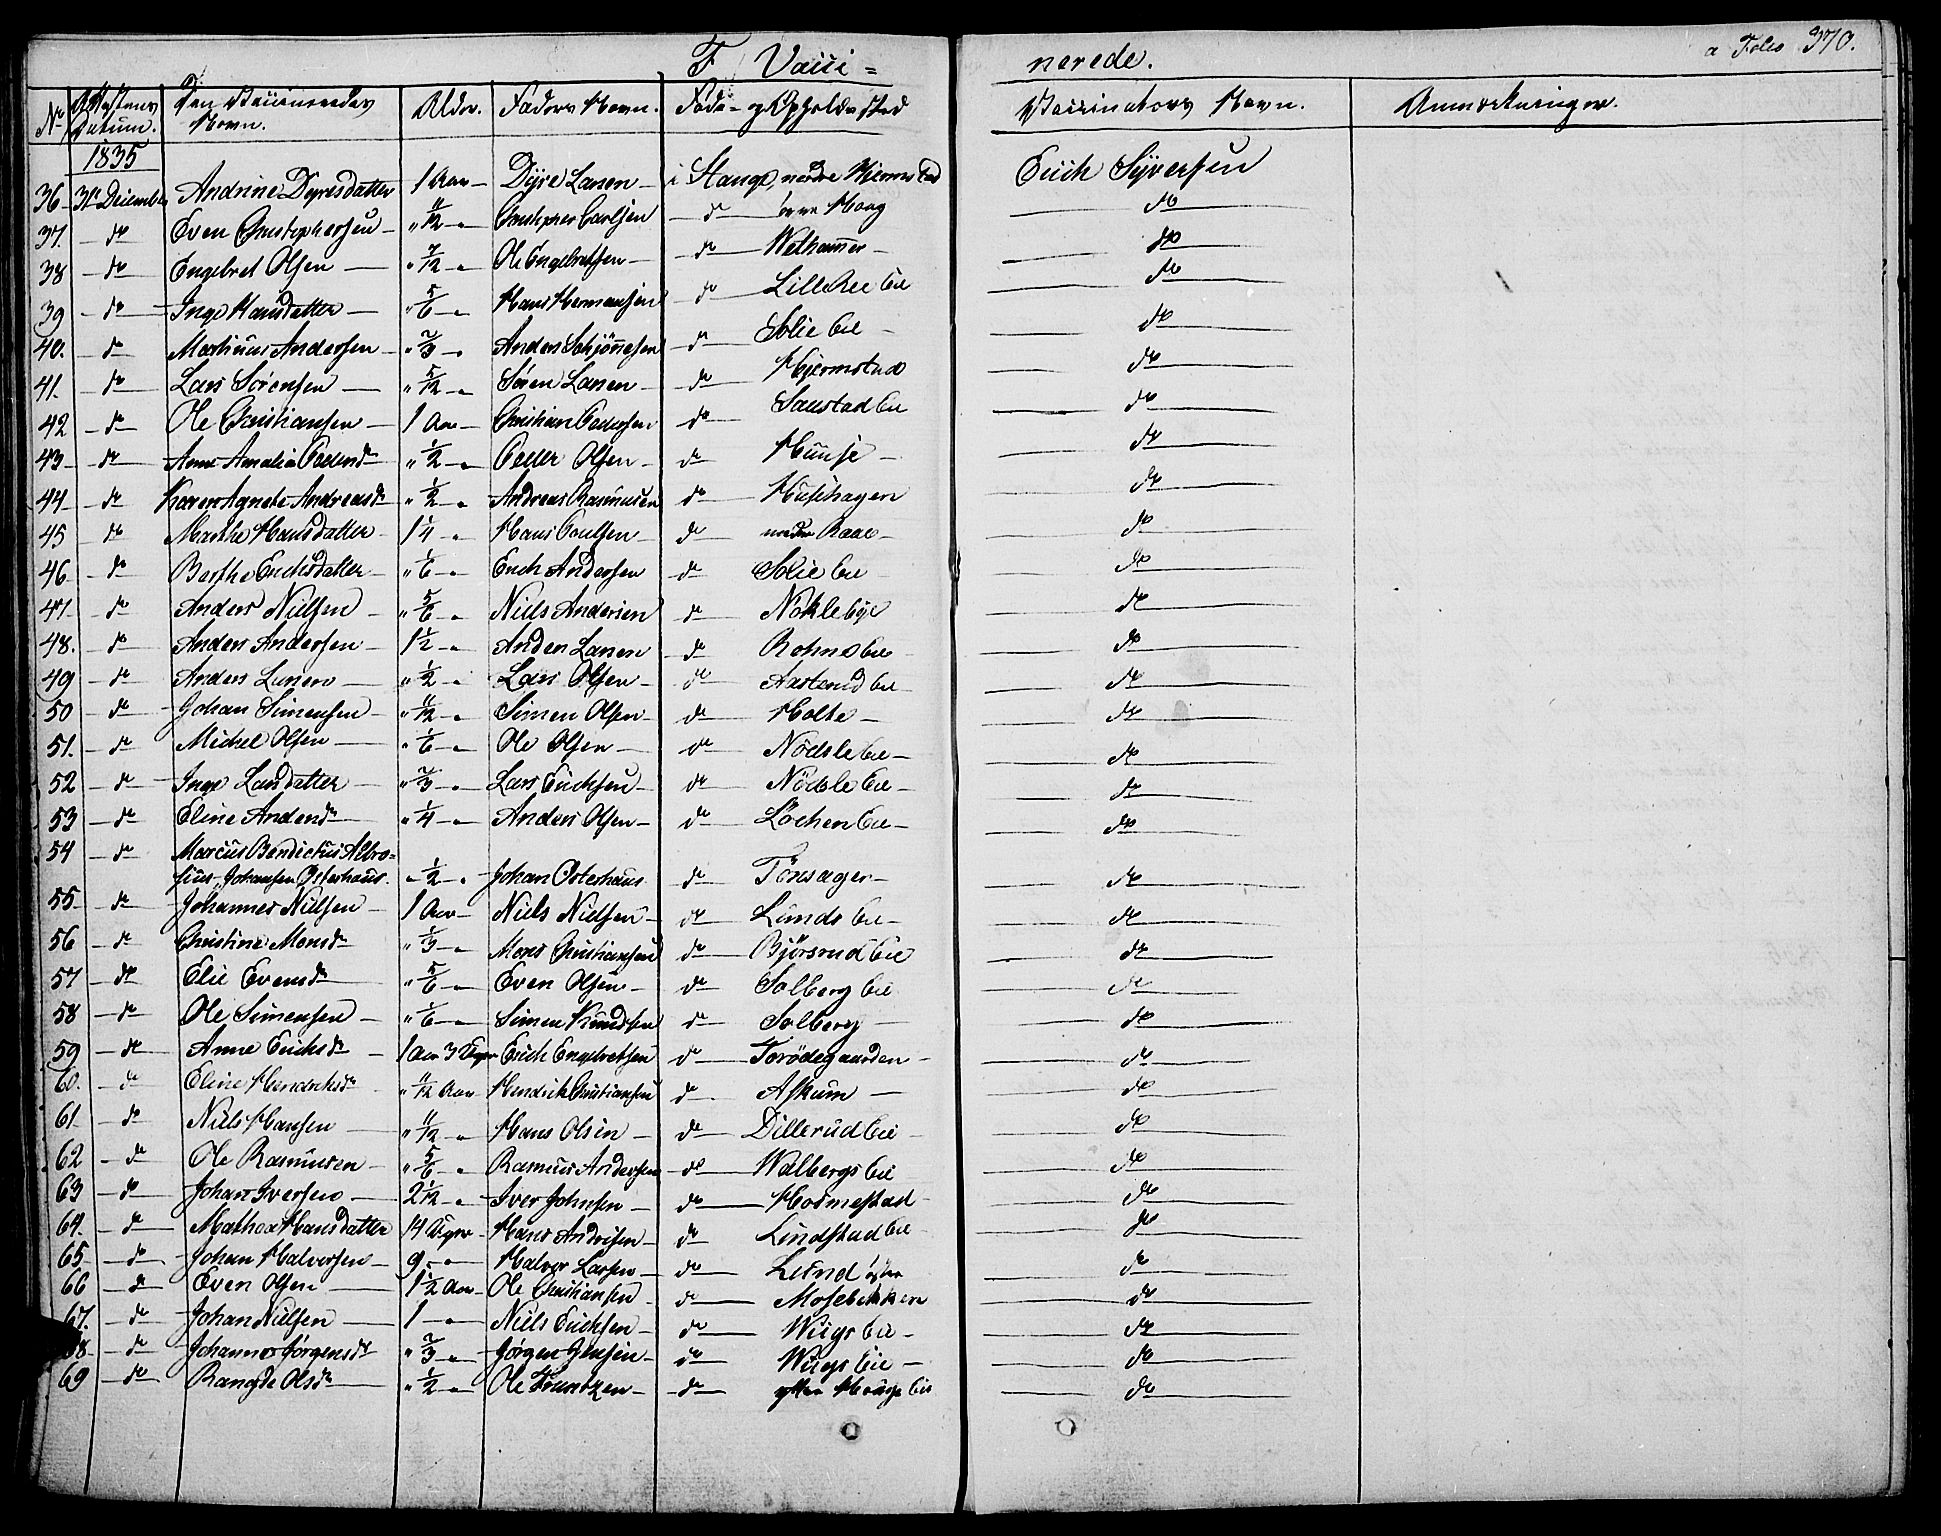 F Vacci= nerede. a Folio 370.
No Attestens Datum. Den Vaccineredes Navn. Alder. Faders Navn. Føde- og Opholdssted Vaccinators Navn. Anmærkninger.
1835
36 31 December Andrine Dyresdatter 1 Aar Dyre Larsen i Stange, nedre Hiermstad Erich Syversen
37. do Even Christophersen " 11/12 " Christopher Carlsen do Haag do
38 do Engebret Olsen " 7/12 " Ole Engebretsen do Wethammer do
39 do Inge Hansdatter " 5/6 " Hans Hermansen do Lille Ree Eie do
40. do Martinus Andersen " 2/3 " Anders Schjönesen do Solie Eie do
41. do Lars Sørensen " 5/12 " Søren Larsen do Hjermstad do
42 do Ole Christiansen 1 Aar Christian Pedersen do Saustad Eie do
43 do Anne Amalia Pedersdr " 1/2 " Peder Olsen do Huuse do
44 do Karen Agnete Andreasdr " 1/2 " Andreas Rasmusen do Kushagen do
45 do Marthe Hansdatter 1 1/4 " Hans Poulsen do nedre Raae do
46 do Berthe Erichsdatter " 1/6 " Erich Andersen do Solie Eie do
47 do Anders Nielsen " 5/6 " Niels Andersen do Nøkleby do
48. do Anders Andersen 1 1/2 " Anders Larsen do Rohns Eie do
49 do Anders Larsen " 1/2 " Lars Olsen do Aasterud Eie do
50 do Johan Simensen " 11/12 " Simen Olsen do Holte do
51. do Michel Olsen " 1/6 " Ole Olsen do Nödsle Eie do
52 do Inge Larsdatter " 2/3 " Lars Erichsen do Nödsle Eie do
53 do Eline Andersdr " 1/4 " Anders Olsen do Löchen Eie do
54 do Marcus Bendictus Albro=
sius Johansen Osterhaus. " 1/2 " Johan Osterhaus do Törsager do
55 do Johannes Nielsen 1 Aar Niels Nielsen do Lunds Eie do
56 do Christine Monsdr " 1/3 " Mons Christiansen do Bjørsrud Eie do
57 do Elie Evensdr " 5/6 " Even Olsen do Solberg Eie do
58 do Ole Simensen " 1/6 " Simen Knudsen do Solberg do
59 do Anne Erichsdr 1 Aar 3 Uger Erich Engebretsen do Torödegaarden do
60. do Eline Hendrichsdr " 11/12 Aar Hendrich Christiansen do Askum do
61 do Niels Hansen " 11/12 " Hans Olsen do Dillerud Eie do
62 do Ole Rasmusen " 5/6 " Rasmus Andersen do Walbergs Eie do
63 do Johan Iversen 2 1/12 " Iver Johnsen do Hormestad do
64. do Mathea Hansdatter 14 Uger Hans Andersen do Lindstad Eie do
65 do Johan Halvorsen 9 " Halvor Larsen do Lund do
66 do Even Olsen 1 1/2 Aar Ole Christiansen do Mosebekken do
67. do Johan Nielsen 1 " Niels Erichsen do Wiigs Eie do
68 do Johannes Jörgensdr " 2/3 " Jörgen do Wiigs Eie do
69 do Olsdr " 1/2 " Ole do Houge Eie do